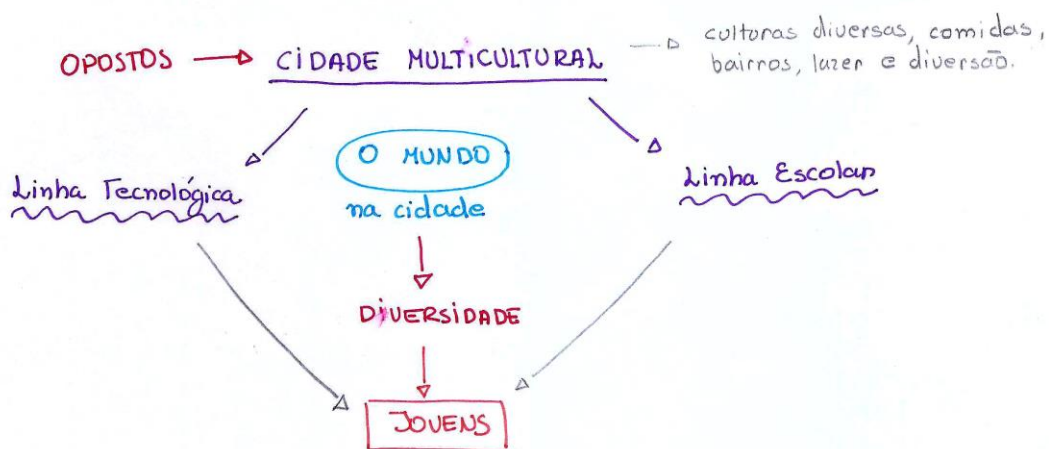 OPOSTOS → CIDADE MULTICULTURAL → culturas diversas, comidas,
bairros, lazer e diversão.
O MUNDO
na cidade
Linha Tecnológica
Linha Escolar
DIVERSIDADE
JOVENS